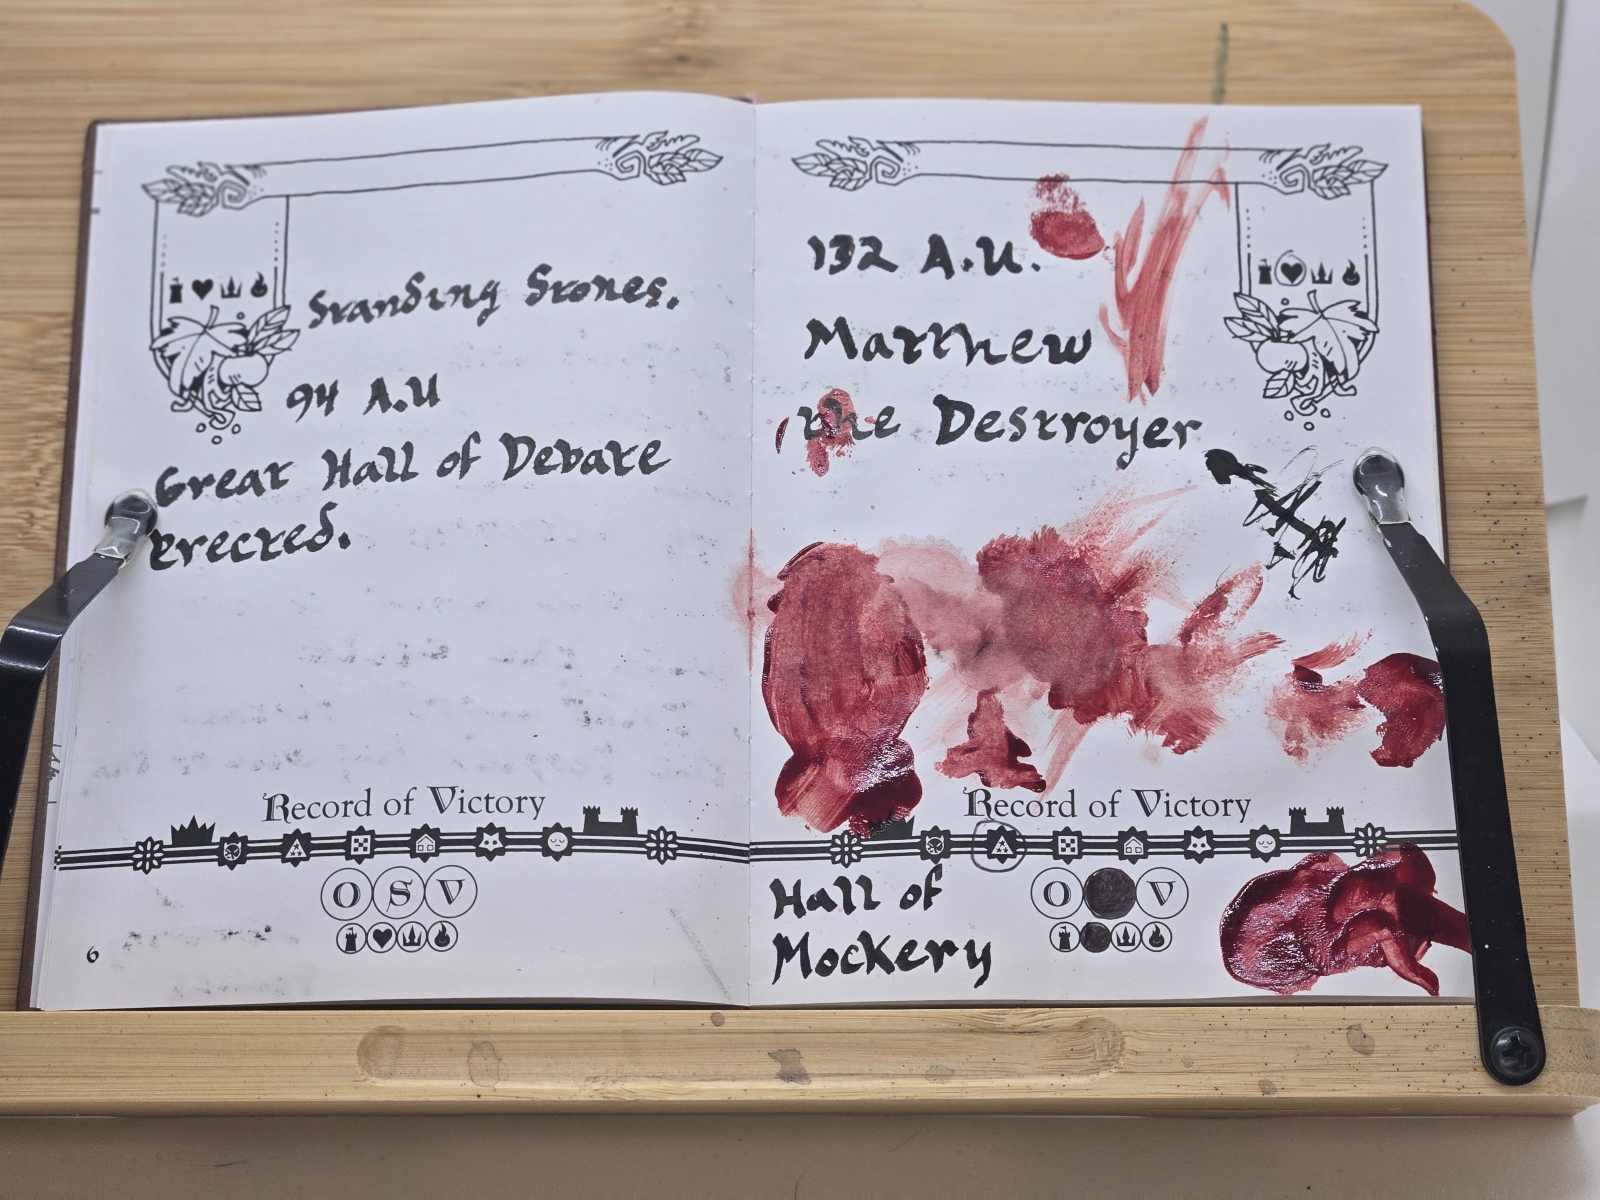 Standing Stones.
94 A.U
Great Hall of Debate
erected.
Record of Victory
O S V
6
132 A.U.
Matthew
the Destroyer
Record of Victory
O V
Hall of
Mockery